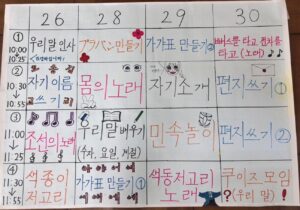 26 28 29 30
① 10:00 ↓ 10:25
우리말 인사
プラバン만들기
가가표 만들기②
버스를 타고 전차를 타고 (노래)
② 10:30 ↓ 10:55
자기 이름 쓰기
몸의 노래
자기소개
편지쓰기①
③ 11:00 ↓ 11:25
조선의 노래
우리말 배우기
(수자, 요일, 계절)
민속놀이
편지쓰기②
④ 11:30 ↓ 11:55
색종이 저고리
가가표 만들기①
색동저고리 노래
쿠이즈 모임
(우리 말)